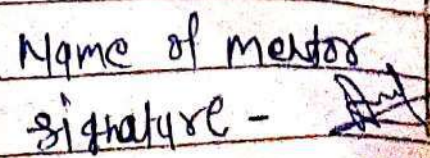 Name of mentor
signature -